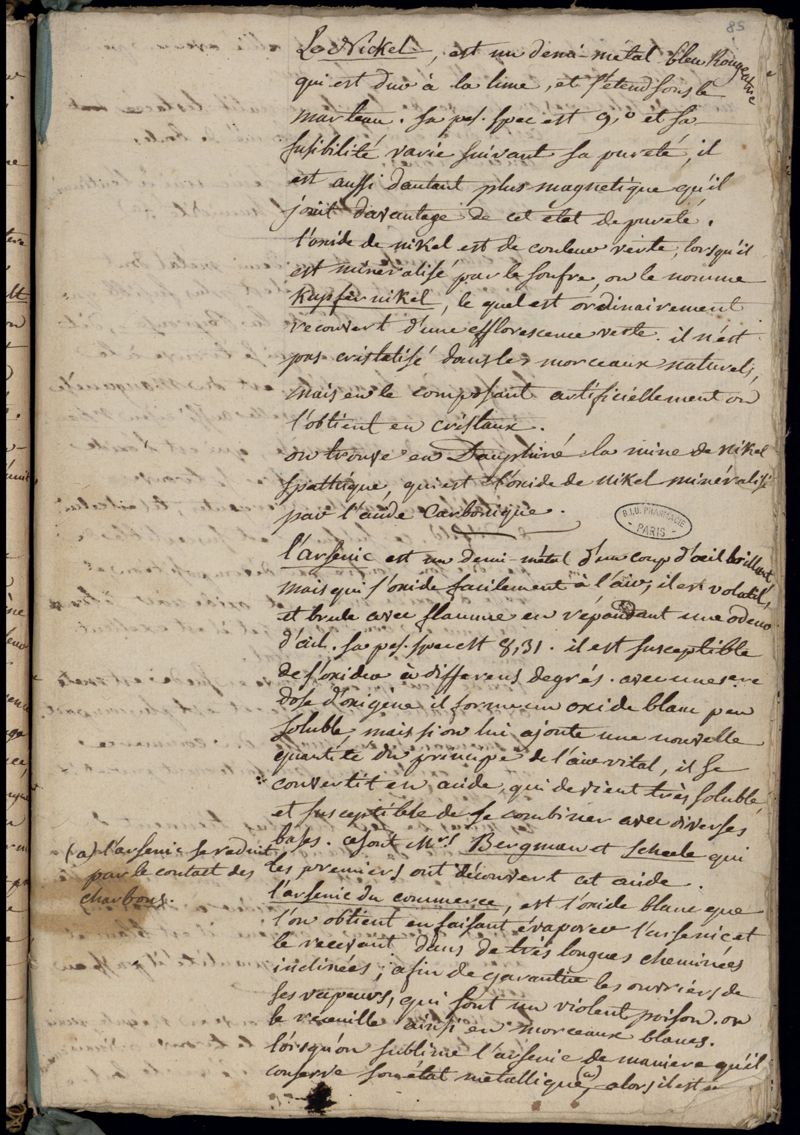 85
Le Nickel, est un demi-métal bleu Rougeatre
qui est dur à la lime, et s'étend sous le
marteau. sa pes. spec est 9,0 et sa
fusibilité varie suivant sa pureté, il
est aussi d'autant plus magnetique qu'il
jouit davantage de cet etat de pureté.
l'oxide de nikel est de couleur verte, lorsqu'il
est minéralisé par le soufre, on le nomme
Kupfer nikel, le quel est ordinairement
recouvert d'une efflorescence verte. il n'est
pas cristalisé dans les morceaux naturels,
mais en le composant artificiellement on
l'obtient en cristaux.
on trouve en Dauphiné la mine de nikel
spathique, qui est l'oxide de nikel minéralisé
par l'acide Carbonique.
B.I.U. PHARMACIE
PARIS
l'arsenic est un demi-métal d'un coup d'œil brillant,
mais qui s'oxide facilement à l'air, il est volatil,
et brule avec flamme en répandant une odeur
d'ail. sa pes. spec est 8,31. il est susceptible
de s'oxider à differens degrés. avec une 1ere
dose d'oxigène il forme un oxide blanc peu
soluble, mais si on lui ajoute une nouvelle
quantité du principe de l'air vital, il se
convertit en acide, qui devient très soluble,
et susceptible de se combiner avec diverses
bases. ce sont Mrs Bergman et Scheele qui
les premiers ont découvert cet acide.
l'arsenic du commerce, est l'oxide blanc que
l'on obtient en faisant évaporer l'arsenic et
le recevant dans de très longues cheminées
inclinées, afin de garantir les ouvriers de
ses vapeurs, qui sont un violent poison. on
le recueille ainsi en morceaux blancs.
lorsqu'on sublime l'arsenic de maniere qu'il
conserve son état métallique (a), alors il est
(a) l'arsenic se reduit
par le contact des
charbons.